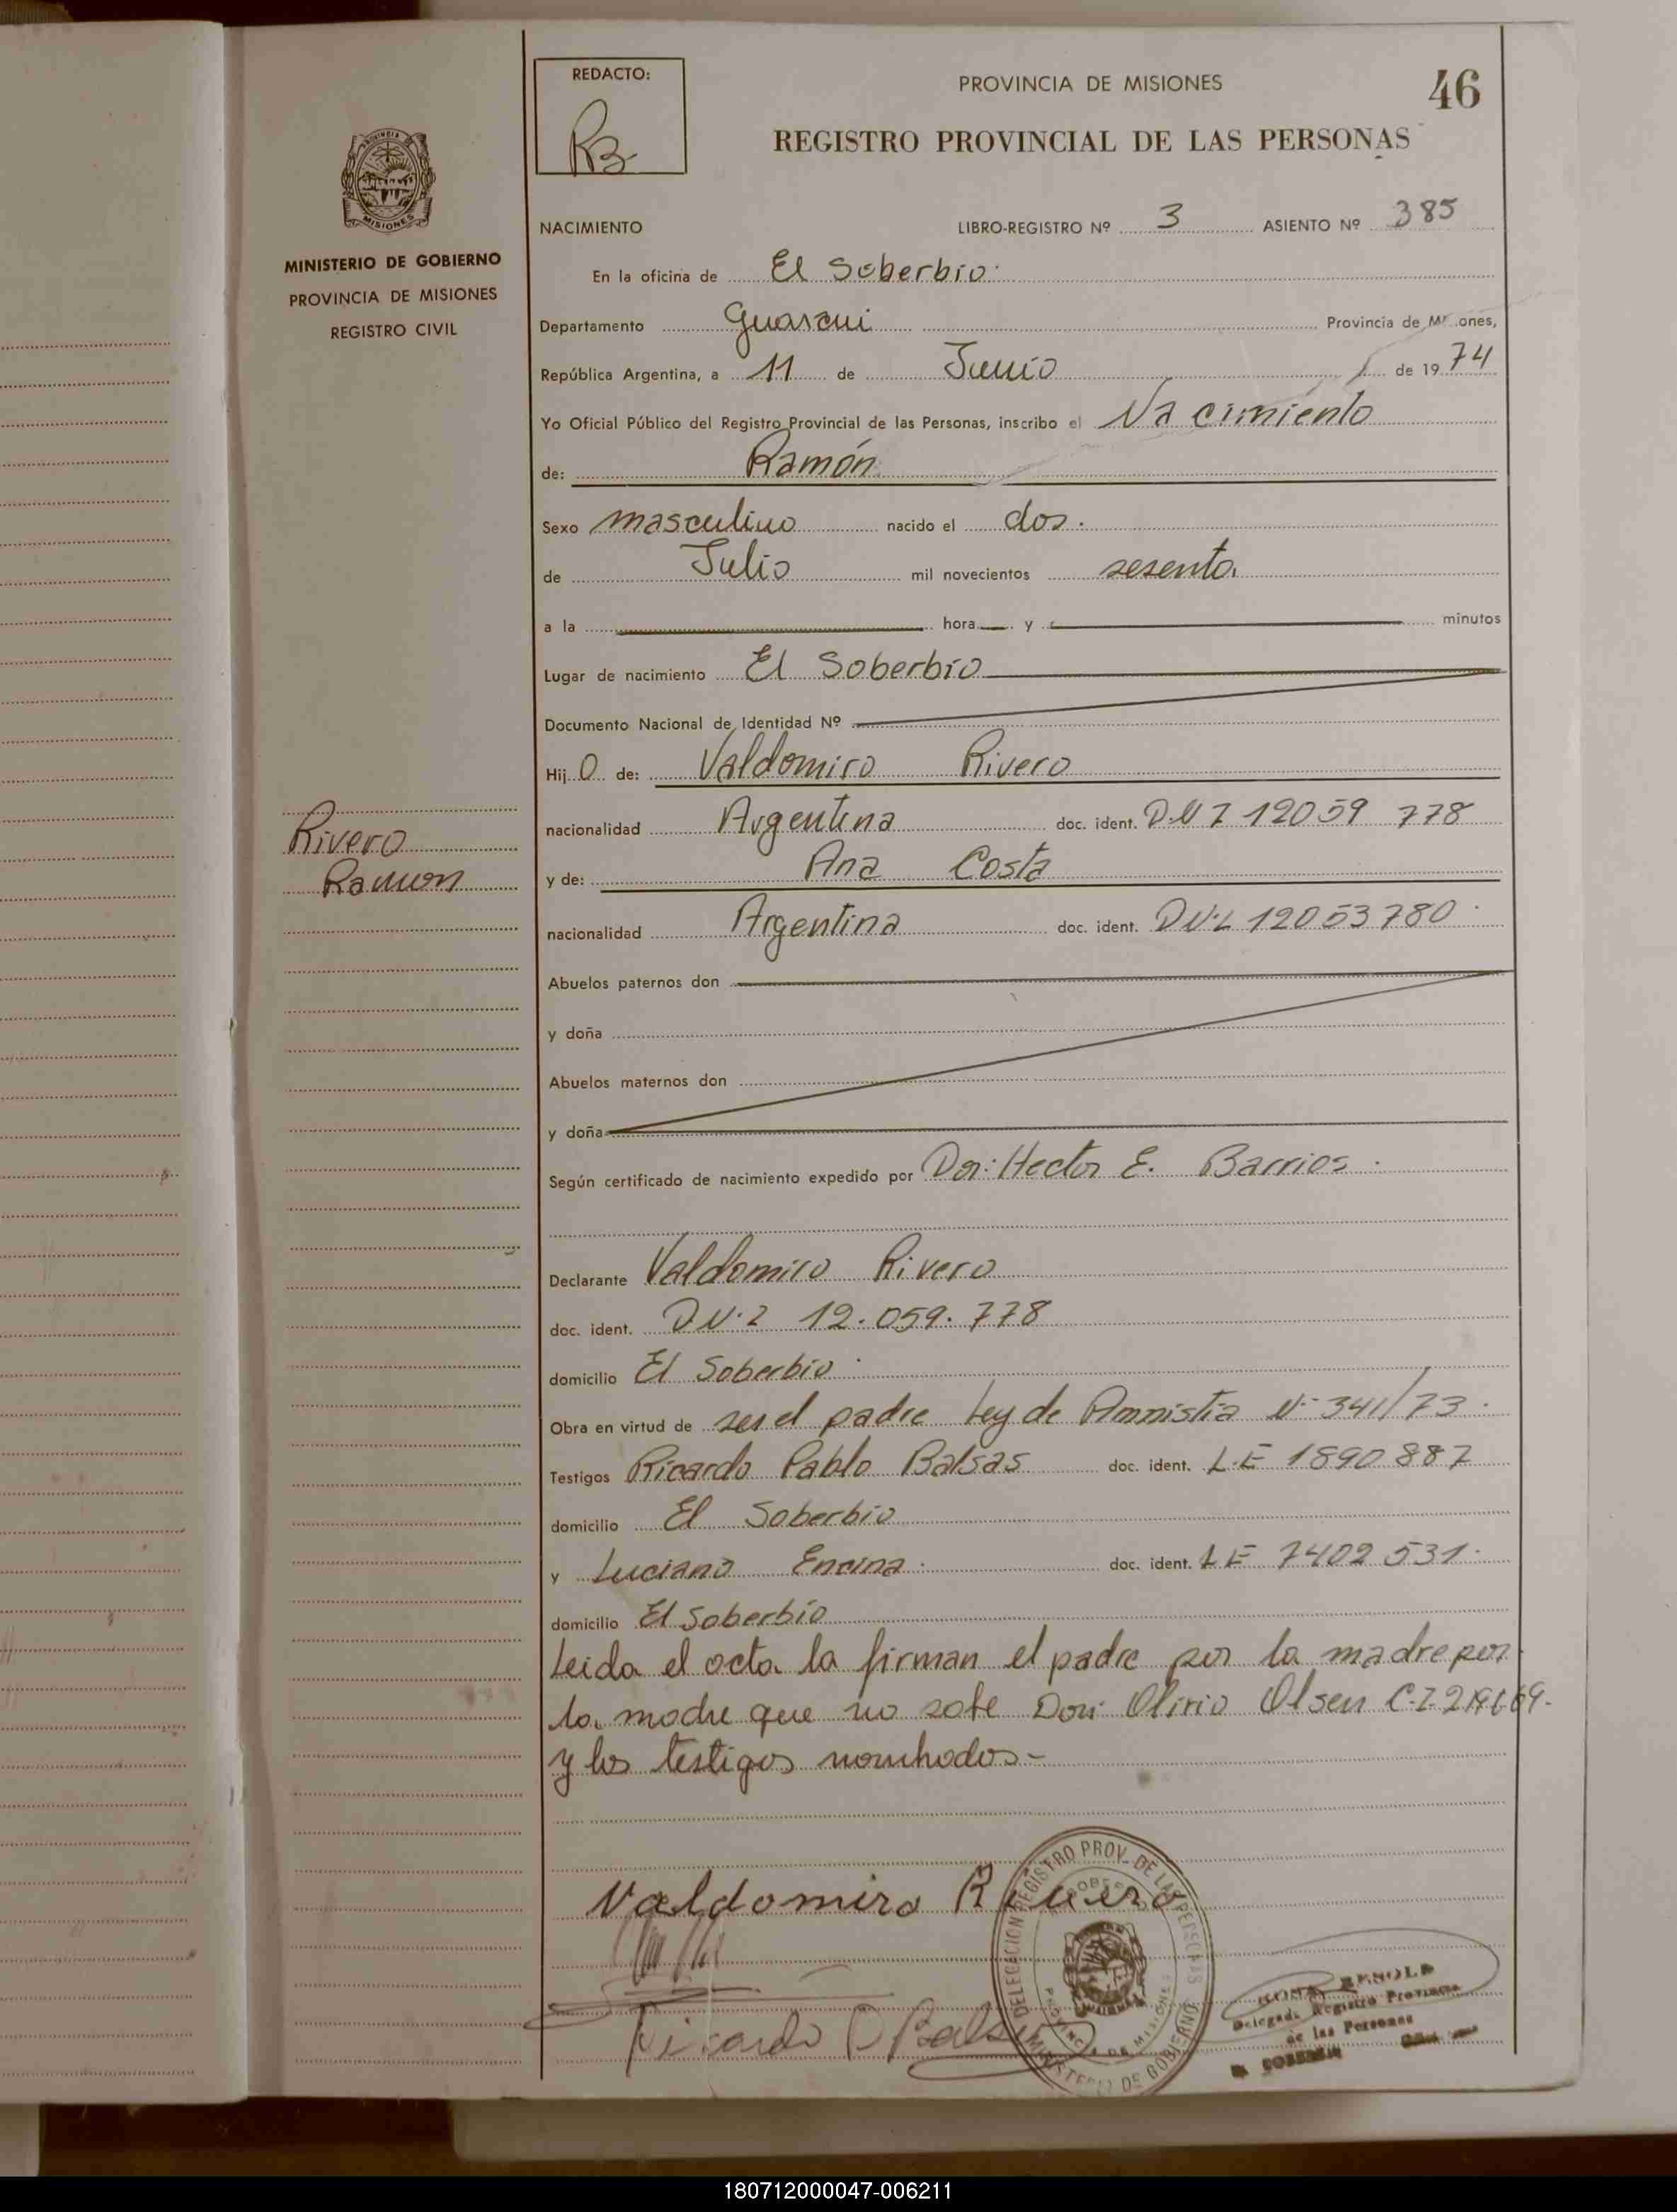 REDACTO:
RB
PROVINCIA DE MISIONES
46
REGISTRO PROVINCIAL DE LAS PERSONAS
PROVINCIA
MISIONES
MINISTERIO DE GOBIERNO
PROVINCIA DE MISIONES
REGISTRO CIVIL
NACIMIENTO LIBRO-REGISTRO Nº 3 ASIENTO Nº 385
En la oficina de El Soberbio.
Departamento Guarani Provincia de Mi ones,
República Argentina, a 11 de Junio de 1974
Yo Oficial Público del Registro Provincial de las Personas, inscribo el Nacimiento
de: Ramón
Sexo masculino nacido el dos.
de Julio mil novecientos sesenta
a la hora y minutos
Lugar de nacimiento El Soberbio
Documento Nacional de Identidad Nº
Hijo de: Valdomiro Rivero
nacionalidad Argentina doc. ident. D.N I 12059 778
Rivero
Ramon
y de: Ana Costa
nacionalidad Argentina doc. ident. D.N.I 12053780
Abuelos paternos don
y doña
Abuelos maternos don
y doña
Según certificado de nacimiento expedido por Don: Hector E. Barrios.
Declarante Valdomiro Rivero
doc. ident. D N.I 12.059.778
domicilio El Soberbio.
Obra en virtud de ser el padre Ley de Amnistia Nº 341/73.
Testigos Ricardo Pablo Balsas doc. ident. L.E 1890887
domicilio El Soberbio
y Luciano Encina. doc. ident. L E 7402531.
domicilio El Soberbio
Leida el acta la firman el padre por la madre por
la madre que no sabe Don Olirio Olsen C.I.
y los testigos nombrados.-
Valdomiro Rivero
Ricardo P Balsas
DELEGACION REGISTRO PROV. DE LAS PERSONAS
MINISTERIO DE GOBIERNO
PROVINCIA DE MISIONES
Delegada Registro Provincial
de las Personas
180712000047-006211